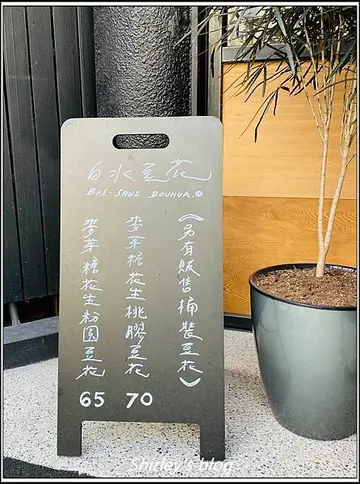 白水豆花
BAI-SHUI DOUHUA.
(另有販售桶裝豆花)
麥芽糖花生桃膠豆花
70
麥芽糖花生粉圓豆花
65
Shirley's blog